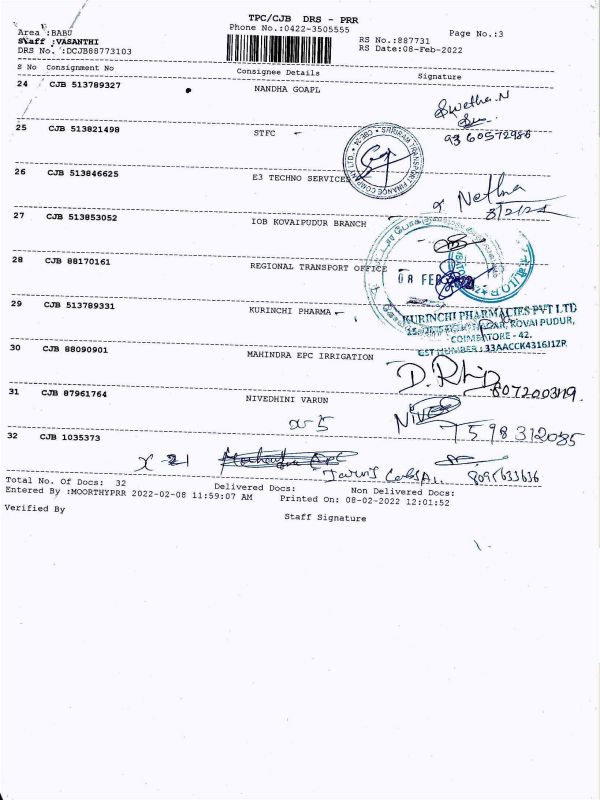 TPC/CJB DRS - PRR
Phone No.:0422-3505555
Page No.:3
Area :BABU
Staff :VASANTHI
DRS No. :DCJB88773103
RS No.:887731
RS Date:08-Feb-2022
S No Consignment No Consignee Details Signature
24 CJB 513789327 NANDHA GOAPL
Swetha.N
25 CJB 513821498 STFC
SHRIRAM TRANSPORT FINANCE COMPANY LTD.
26 CJB 513846625 E3 TECHNO SERVICES
Nethra
8/2/22
27 CJB 513853052 IOB KOVAIPUDUR BRANCH
28 CJB 88170161 REGIONAL TRANSPORT OFFICE
08 FEB 2022
29 CJB 513789331 KURINCHI PHARMA
KURINCHI PHARMACIES PVT LTD
NAGAR, KOVAI PUDUR,
COIMBATORE - 42.
GST NUMBER : 33AACCK4316J1ZR
30 CJB 88090901 MAHINDRA EPC IRRIGATION
31 CJB 87961764 NIVEDHINI VARUN
7598312085
32 CJB 1035373
8095633636
Total No. of Docs: 32 Delivered Docs: Non Delivered Docs:
Entered By :MOORTHYPRR 2022-02-08 11:59:07 AM Printed On: 08-02-2022 12:01:52
Verified By Staff Signature